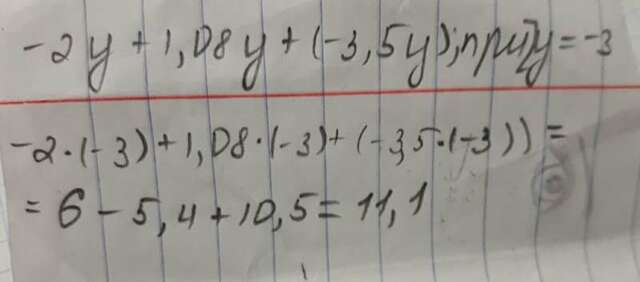 -2y + 1,08y + (-3,5y); при y = -3
-2·(-3)+1,08·(-3)+(-3,5·(-3)) =
= 6 - 5,4 + 10,5 = 11,1